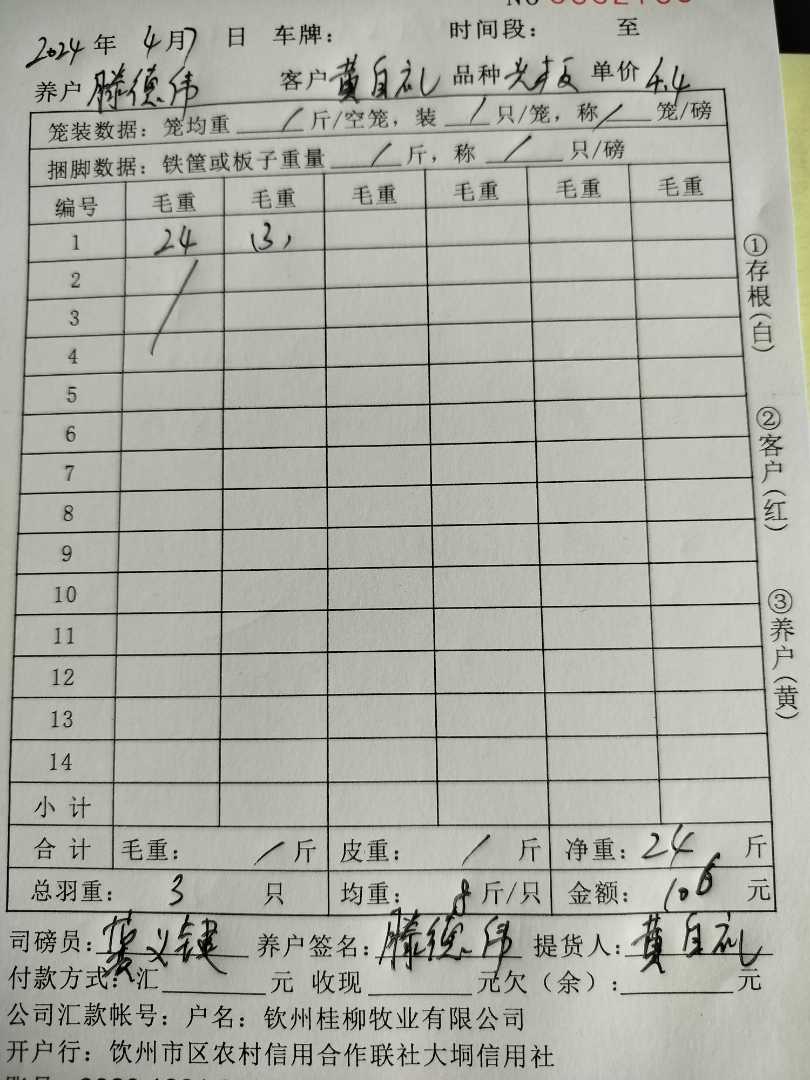 2024 年 4 月 7 日 车牌： 时间段： 至
养户 滕德伟 客户 黄自礼 品种 光板 单价 4.4
笼装数据：笼均重 / 斤/空笼，装 / 只/笼，称 / 笼/磅
捆脚数据：铁筐或板子重量 / 斤，称 / 只/磅
编号 毛重 毛重 毛重 毛重 毛重 毛重
1 24 (3)
2 /
3
4
5
6
7
8
9
10
11
12
13
14
小计
合计 毛重： / 斤 皮重： / 斤 净重：24 斤
总羽重： 3 只 均重： 8 斤/只 金额： 106 元
司磅员： 养户签名：滕德伟 提货人：黄自礼
付款方式：汇 元 收现 元欠（余）: 元
公司汇款帐号：户名：钦州桂柳牧业有限公司
开户行：饮州市区农村信用合作联社大垌信用社
①存根（白）
②客户（红）
③养户（黄）